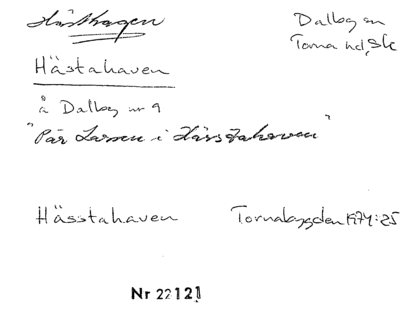 Hästhagen
Dalby sn
Torna hd, Sk
Hästahaven
å Dalby nr 9
"Pär Larsson i Hässtahaven"
Hässtahaven
Tornabygden 1974:25
Nr 22121